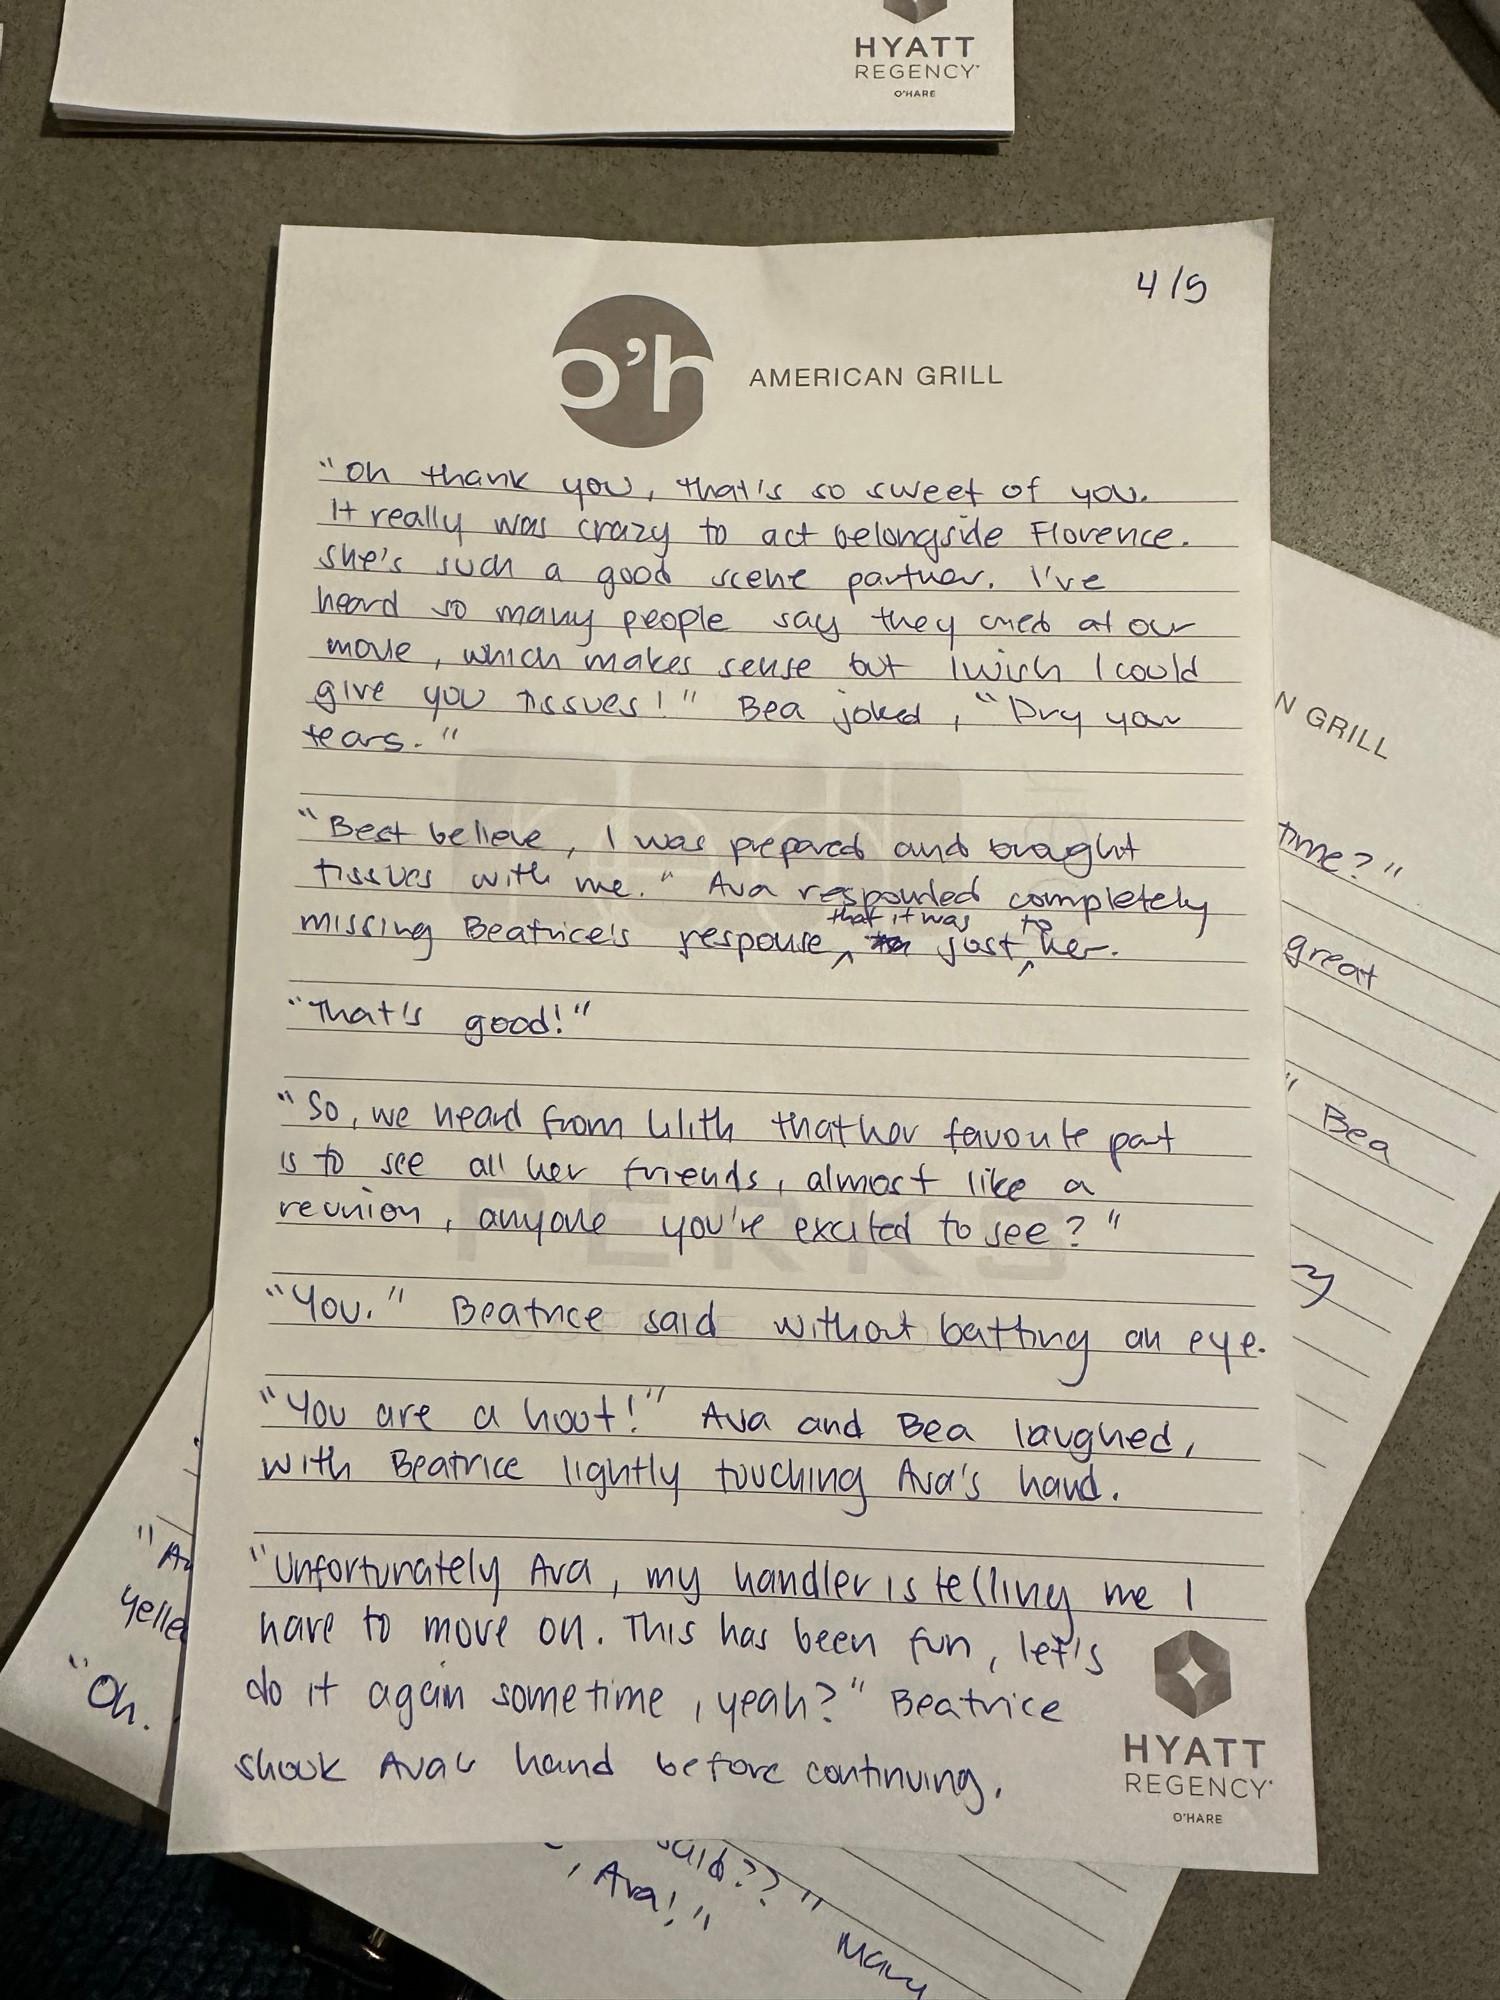 HYATT
REGENCY
O'HARE
4/5
o'h AMERICAN GRILL
"Oh thank you, that's so sweet of you.
It really was crazy to act belongside Florence.
She's such a good scene partner. I've
heard so many people say they cried at our
movie, which makes sense but I wish I could
give you tissues!" Bea joked, "Dry your
tears."
"Best believe, I was prepared and brought
tissues with me." Ava responded completely
missing Beatrice's response, that it was just to her.
"That's good!"
"So, we heard from Lilith that her favorite part
is to see all her friends, almost like a
reunion, anyone you're excited to see?"
"You." Beatrice said without batting an eye.
"You are a hoot!" Ava and Bea laughed,
with Beatrice lightly touching Ava's hand.
"Unfortunately Ava, my handler is telling me I
have to move on. This has been fun, let's
do it again sometime, yeah?" Beatrice
shook Ava's hand before continuing.
HYATT
REGENCY
O'HARE
N GRILL
time?"
great
" Bea
"Av
yelled
"Oh.
said??"
, Ava!"
Mary
PERKS